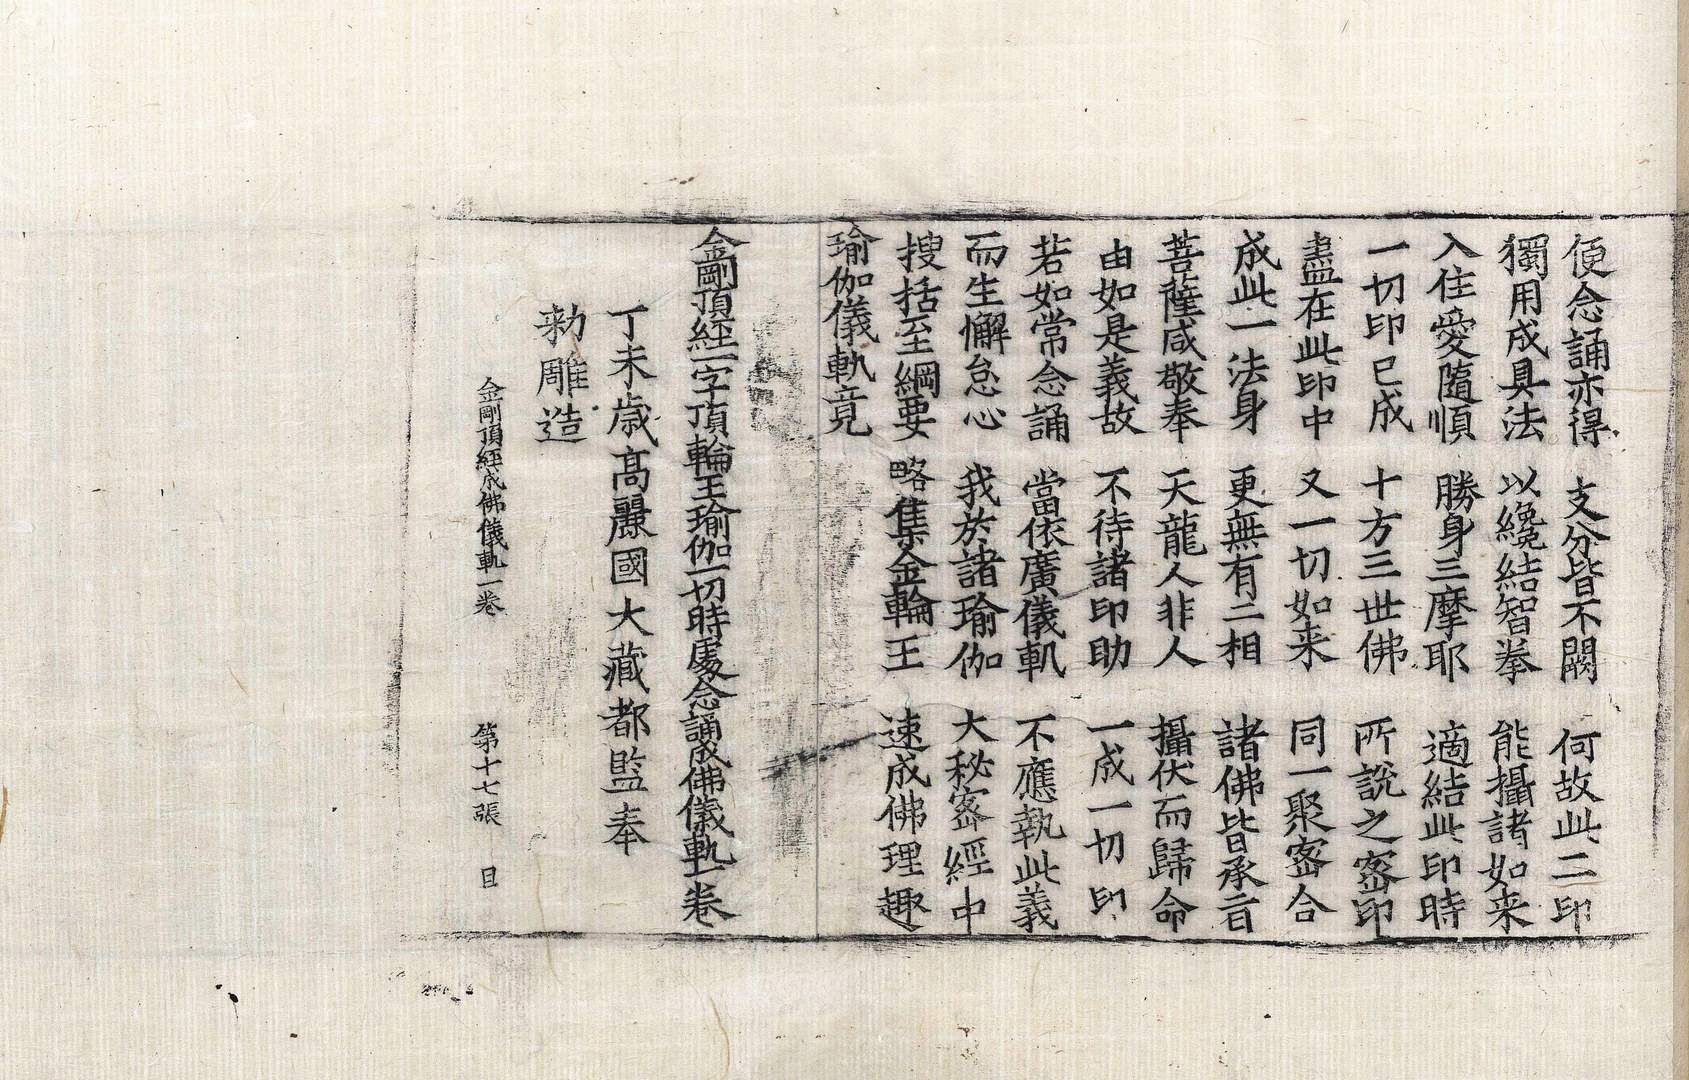 便念誦亦得 支分皆不闕 何故此二印
獨用成具法 以纔結智拳 能攝諸如来
入住愛隨順 勝身三摩耶 適結此印時
一切印已成 十方三世佛 所說之密印
盡在此印中 又一切如来 同一聚密合
成此一法身 更無有二相 諸佛皆承旨
菩薩咸敬奉 天龍人非人 攝伏而歸命
由如是義故 不待諸印助 一成一切印
若如常念誦 當依廣儀軌 不應執此義
而生懈怠心 我於諸瑜伽 大秘密經中
搜括至綱要 略集金輪王 速成佛理趣
瑜伽儀軌竟
金剛頂経一字頂輪王瑜伽一切時處念誦成佛儀軌一卷
丁未歲高麗國大藏都監奉
勑雕造
金剛頂経成佛儀軌一卷 第十七張 目